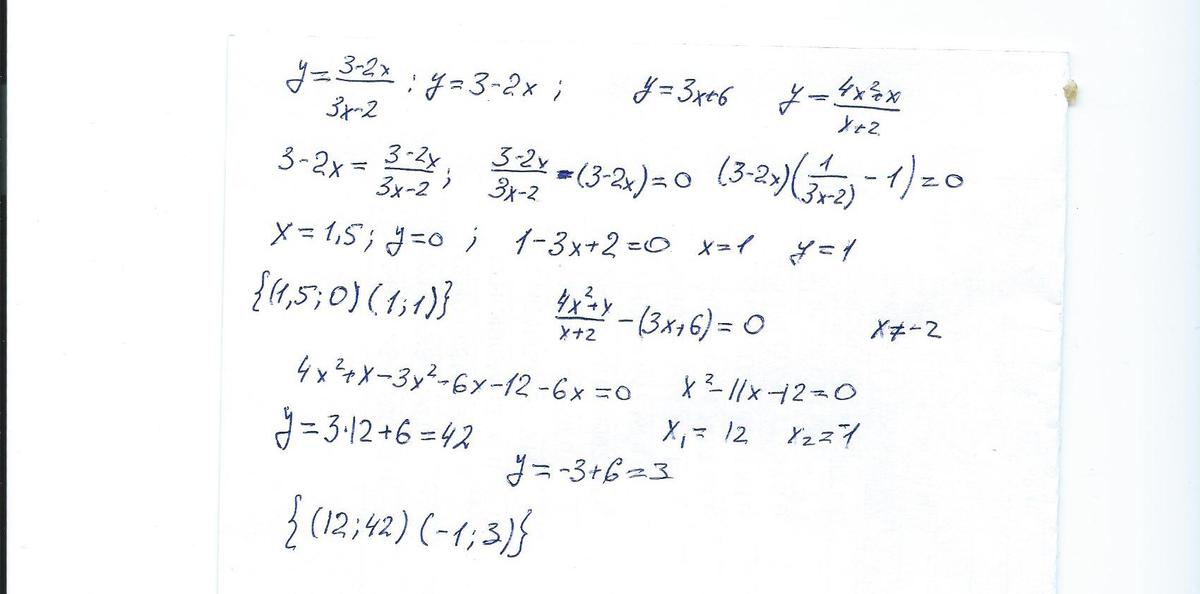 y = (3-2x)/(3x-2) ; y = 3-2x ; y = 3x+6 y = (4x²+x)/(x+2)
3-2x = (3-2x)/(3x-2) ; (3-2x)/(3x-2) - (3-2x) = 0 (3-2x)(1/(3x-2) - 1) = 0
x = 1,5 ; y = 0 ; 1-3x+2 = 0 x = 1 y = 1
{(1,5;0) (1;1)} (4x²+x)/(x+2) - (3x+6) = 0 x ≠ -2
4x²+x-3x²-6x-12-6x = 0 x²-11x-12 = 0
y = 3·12+6 = 42 x₁ = 12 x₂ = -1
y = -3+6 = 3
{(12;42) (-1;3)}